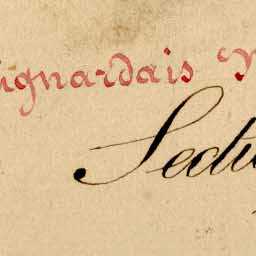 ignardais
Sectu